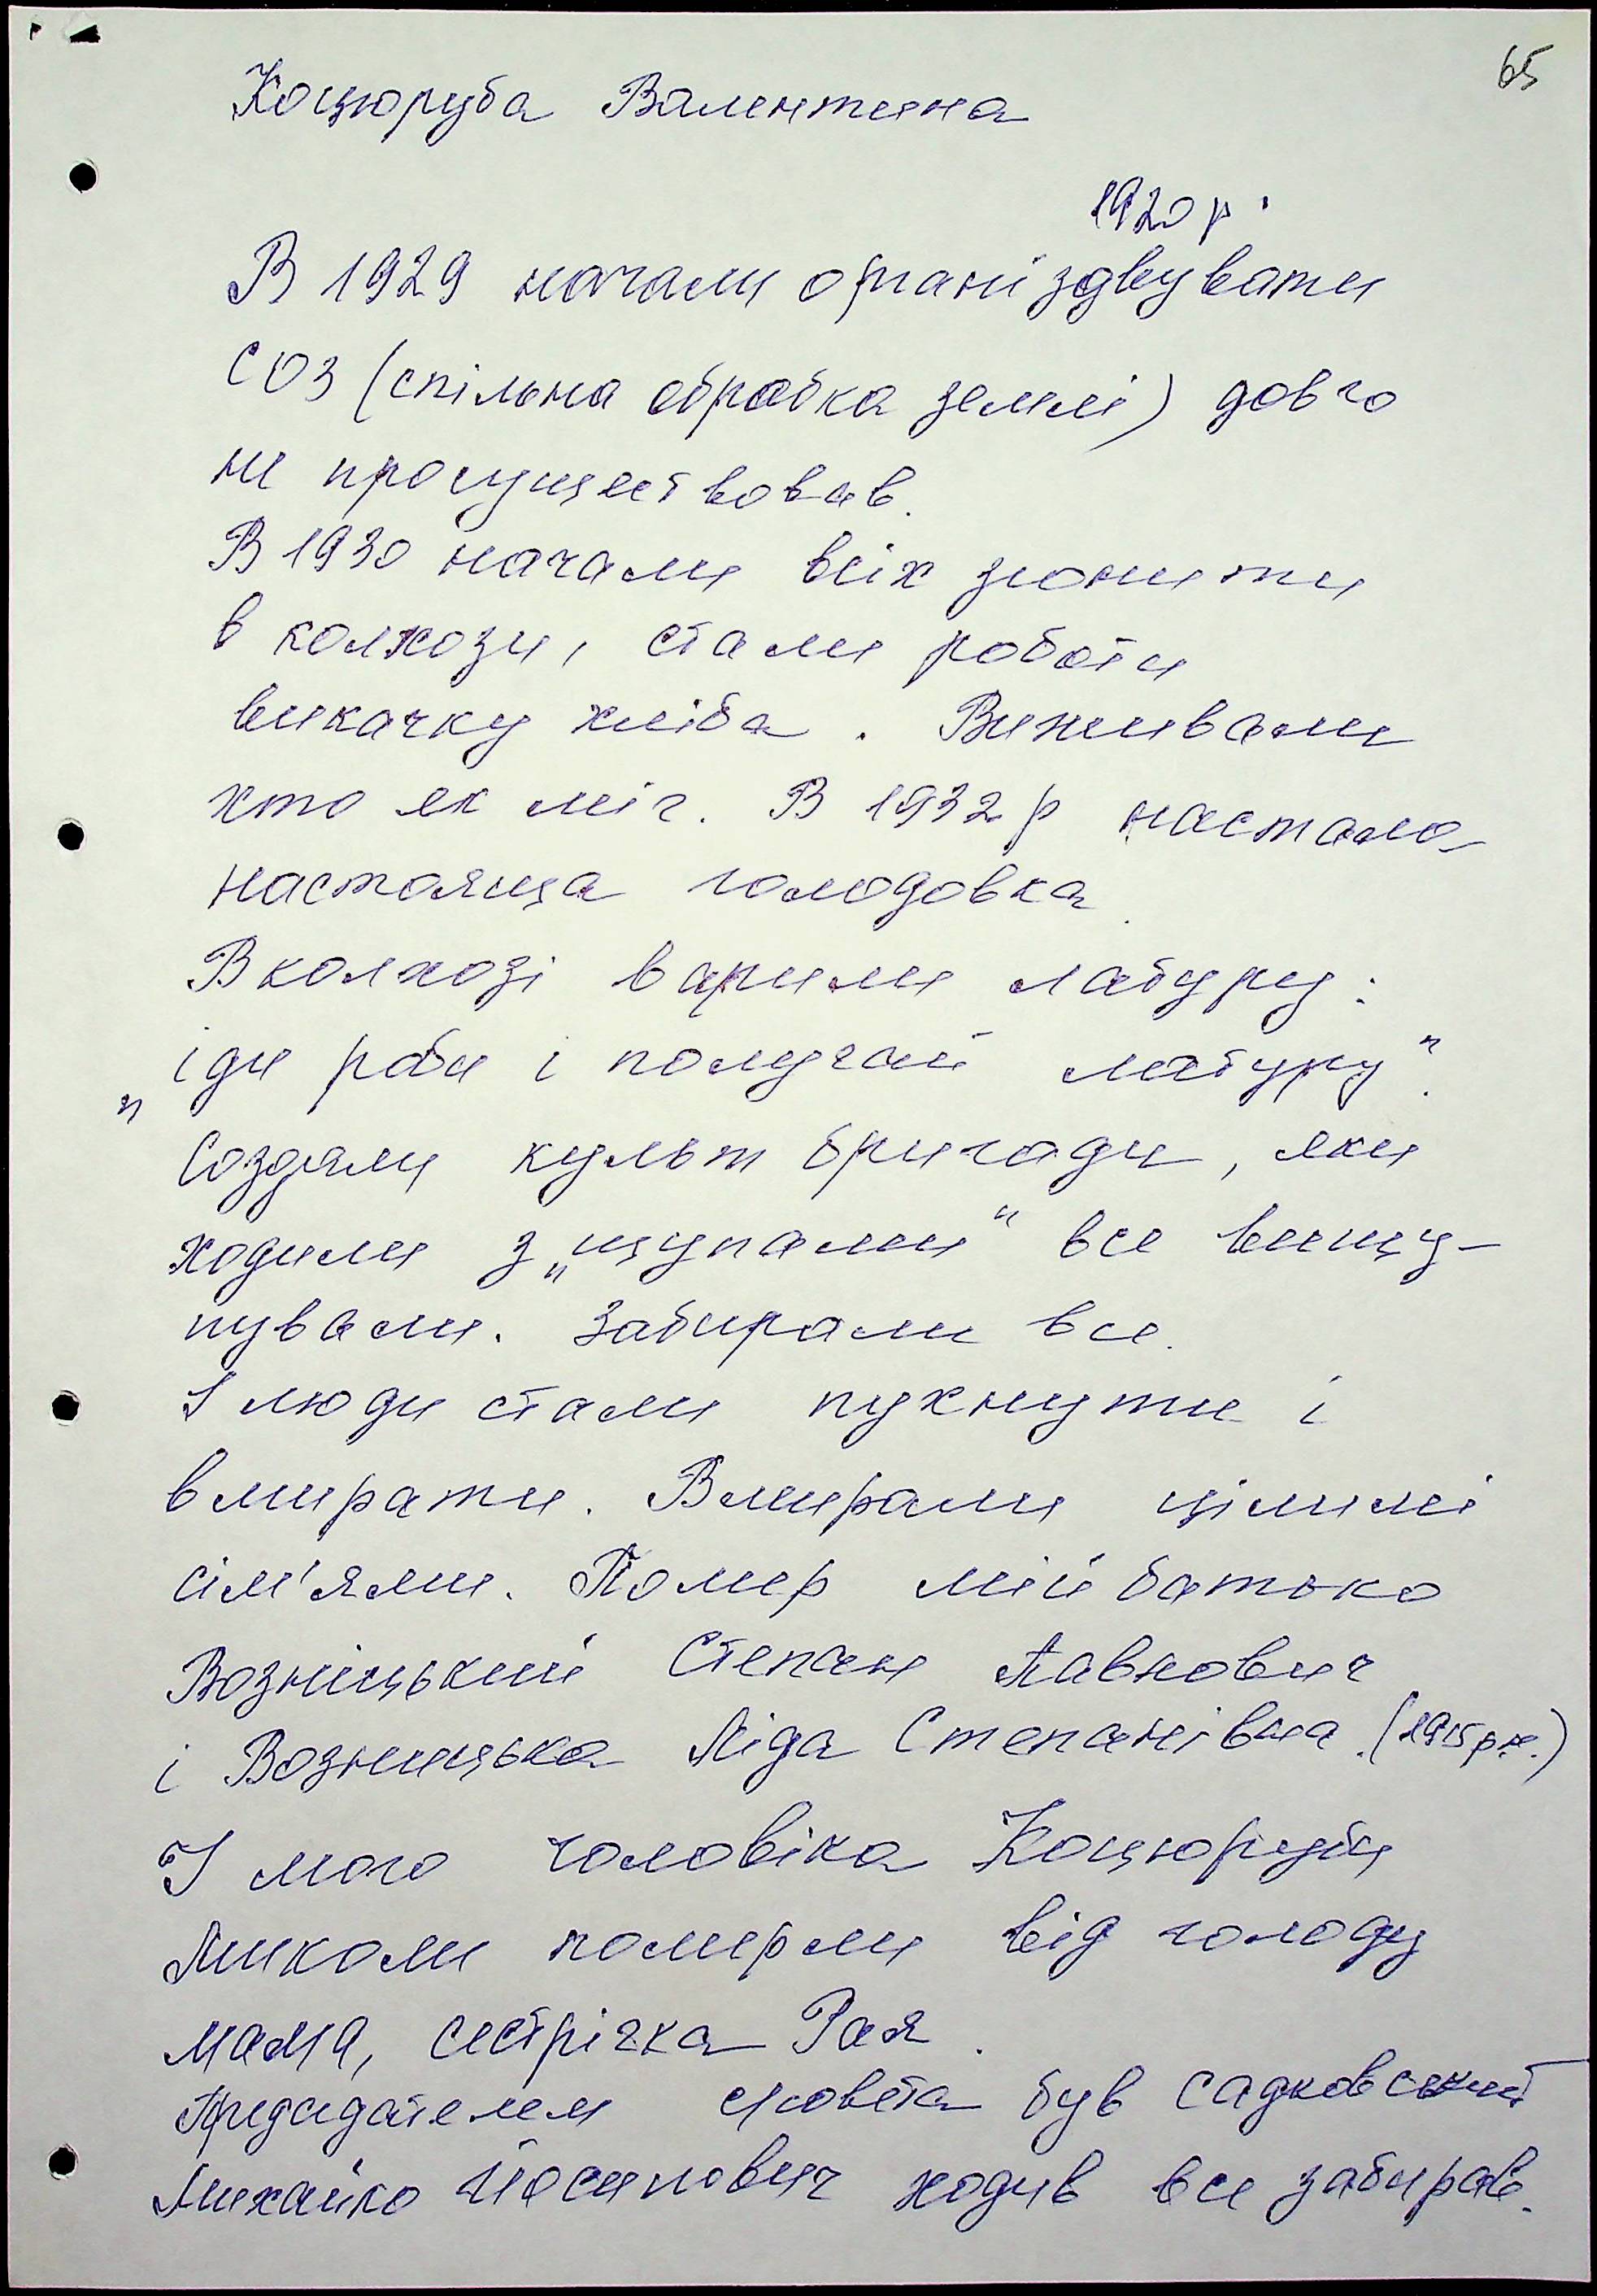 65
Коцюруба Валентина
1920 р.
В 1929 начали організовувати
СОЗ (спільна обрабка землі) довго
не просуществовав.
В 1930 начали всіх згонити
в колхози, стали роботи
викачку хліба. Виживали
хто як міг. В 1932 р настала
настояща голодовка.
В колхозі варили лабуру:
„іди роби і получай лабуру".
Создали культ бригади, яки
ходили з „щупами" все вищу-
пували. Забирали все.
І люди стали пухнути і
вмирати. Вмирали цілимі
сім'ями. Помер мій батько
Возніцький Степан Павкович
і Возницька Ліда Степанівна. (1915 р.н.)
І мого чоловіка Коцюруби
Миколи померли від голоду
мама, сестрічка Рая.
Придсидателем с/совєта був Садковський
Михайко Йосипович ходив все забирав.